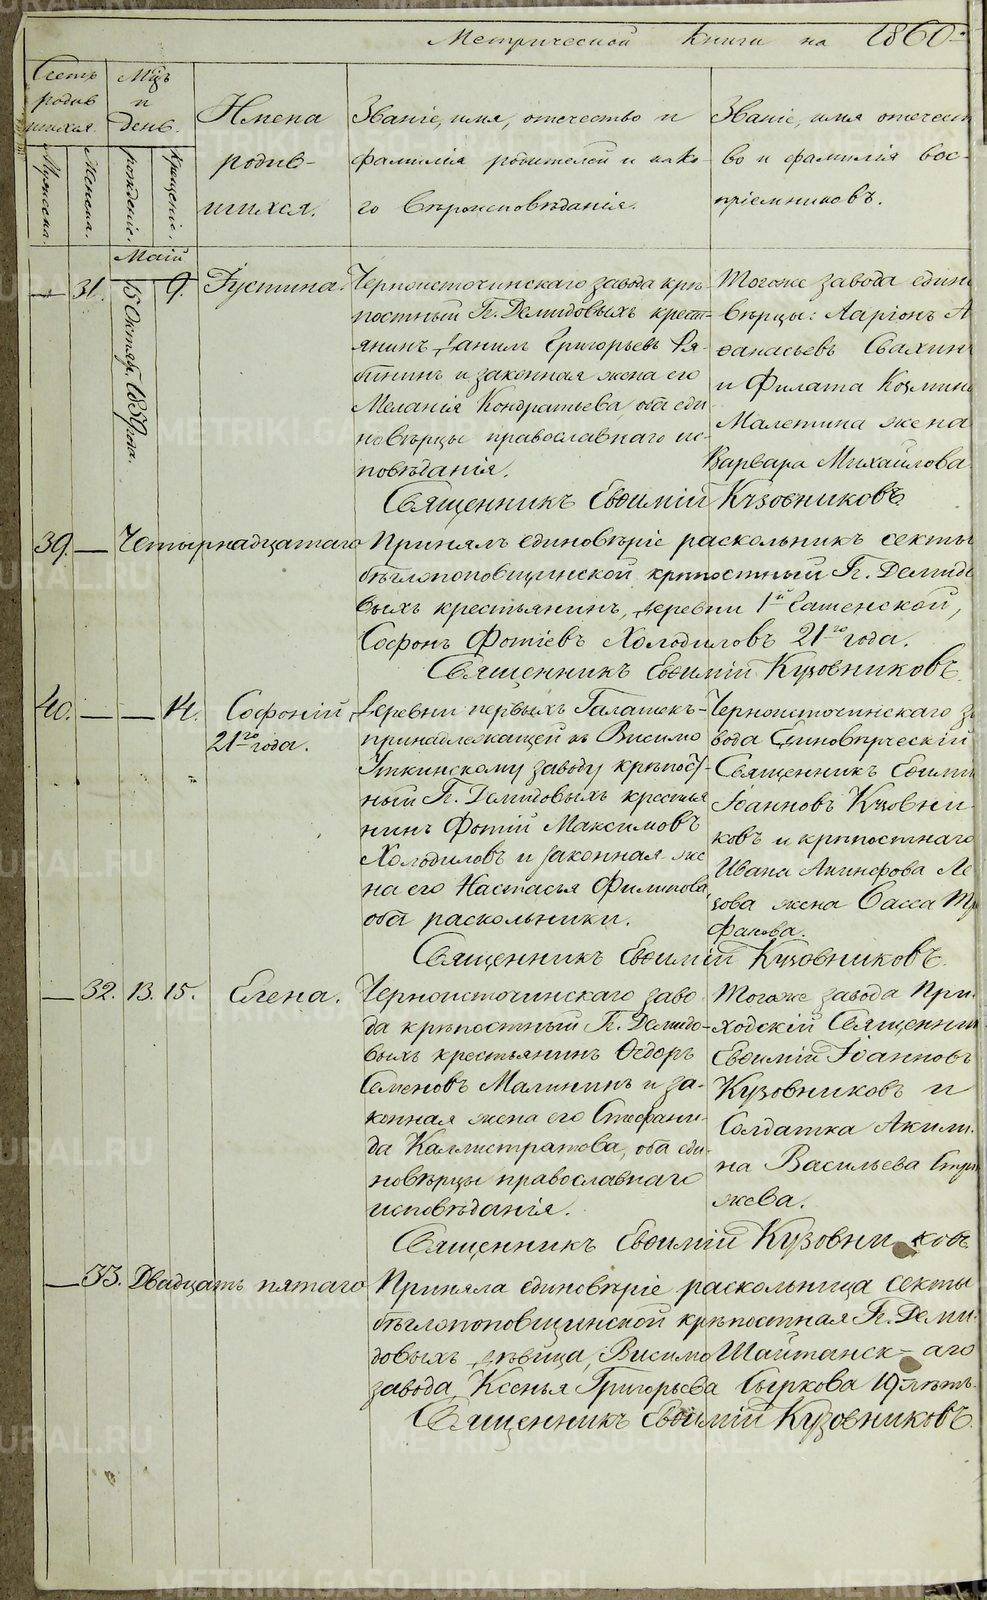 Метрической книги на 1860й
Счетъ родив шихся.
Мцъ и день.
Имена родив- шихся.
Званіе, имя, отечество и
фамилія родителей и како-
го вѣроисповѣданія.
Званіе, имя отечест
во и фамилія вос-
пріемниковъ.
Мужеска.
Женска.
рожденіе.
крещеніе.
Маій
— 31. 15 Октяб. 1859 года. 9. Іустина.
Черноисточинскаго завода крѣ
постный Гг. Демидовыхъ крест-
янинъ Данилъ Григорьевъ Ря-
бининъ и законная жена его
Меланія Кондратьева оба еди
новѣрцы православнаго ис-
повѣданія.
Тогоже завода един
вѣрцы: Ларіонъ А
фанасьевъ Свахин
и Филата Козмина
Малетина жена
Варвара Михайлова
Священникъ Евфимій Кузовниковъ.
39. — Четырнадцатаго Принялъ единовѣріе раскольникъ секты
бѣглопоповщинской крѣпостный Гг. Демидо
выхъ крестьянинъ, деревни 1й Галашенской,
Софонъ Фотіевъ Холодиловъ 21го года.
Священникъ Евфимій Кузовниковъ.
40. — — 14. Софоній, 21го года.
Деревни первыхъ Галашекъ-
принадлежащей къ Висимо
Уткинскому заводу крѣпост-
ный Гг. Демидовыхъ крестья
нинъ Фотій Максимовъ
Холодиловъ и законная же
на его Настасья Филипова,
оба раскольники.
Черноисточинскаго за
вода Единовѣрческій
Священникъ Евфими
Іоанновъ Кузовни
ковъ и крѣпостнаго
Ивана Акинфова Ле
зова жена Васса Тр
фанова.
Священникъ Евфимій Кузовниковъ.
— 32. 13. 15. Елена.
Черноисточинскаго заво
да крѣпостный Гг. Демидо-
выхъ крестьянинъ Ѳедоръ
Семеновъ Малининъ и за-
конная жена его Стефани-
да Каллистратова, оба еди-
новѣрцы православнаго
исповѣданія.
Тогоже завода При-
ходскій Священник
Евфимій Іоанновъ
Кузовниковъ и
Солдатка Акили-
на Васильева Стри
жева.
Священникъ Евфимій Кузовниковъ
— 33. Двадцать пятаго Приняла единовѣріе раскольница секты
бѣглопоповщинской крѣпостная Гг. Деми-
довыхъ, дѣвица, Висимо Шайтанск-аго
завода, Ксенья Григорьева Сыркова 19 лѣтъ.
Священникъ Евфимій Кузовниковъ.
METRIKI.GASO-URAL.RU